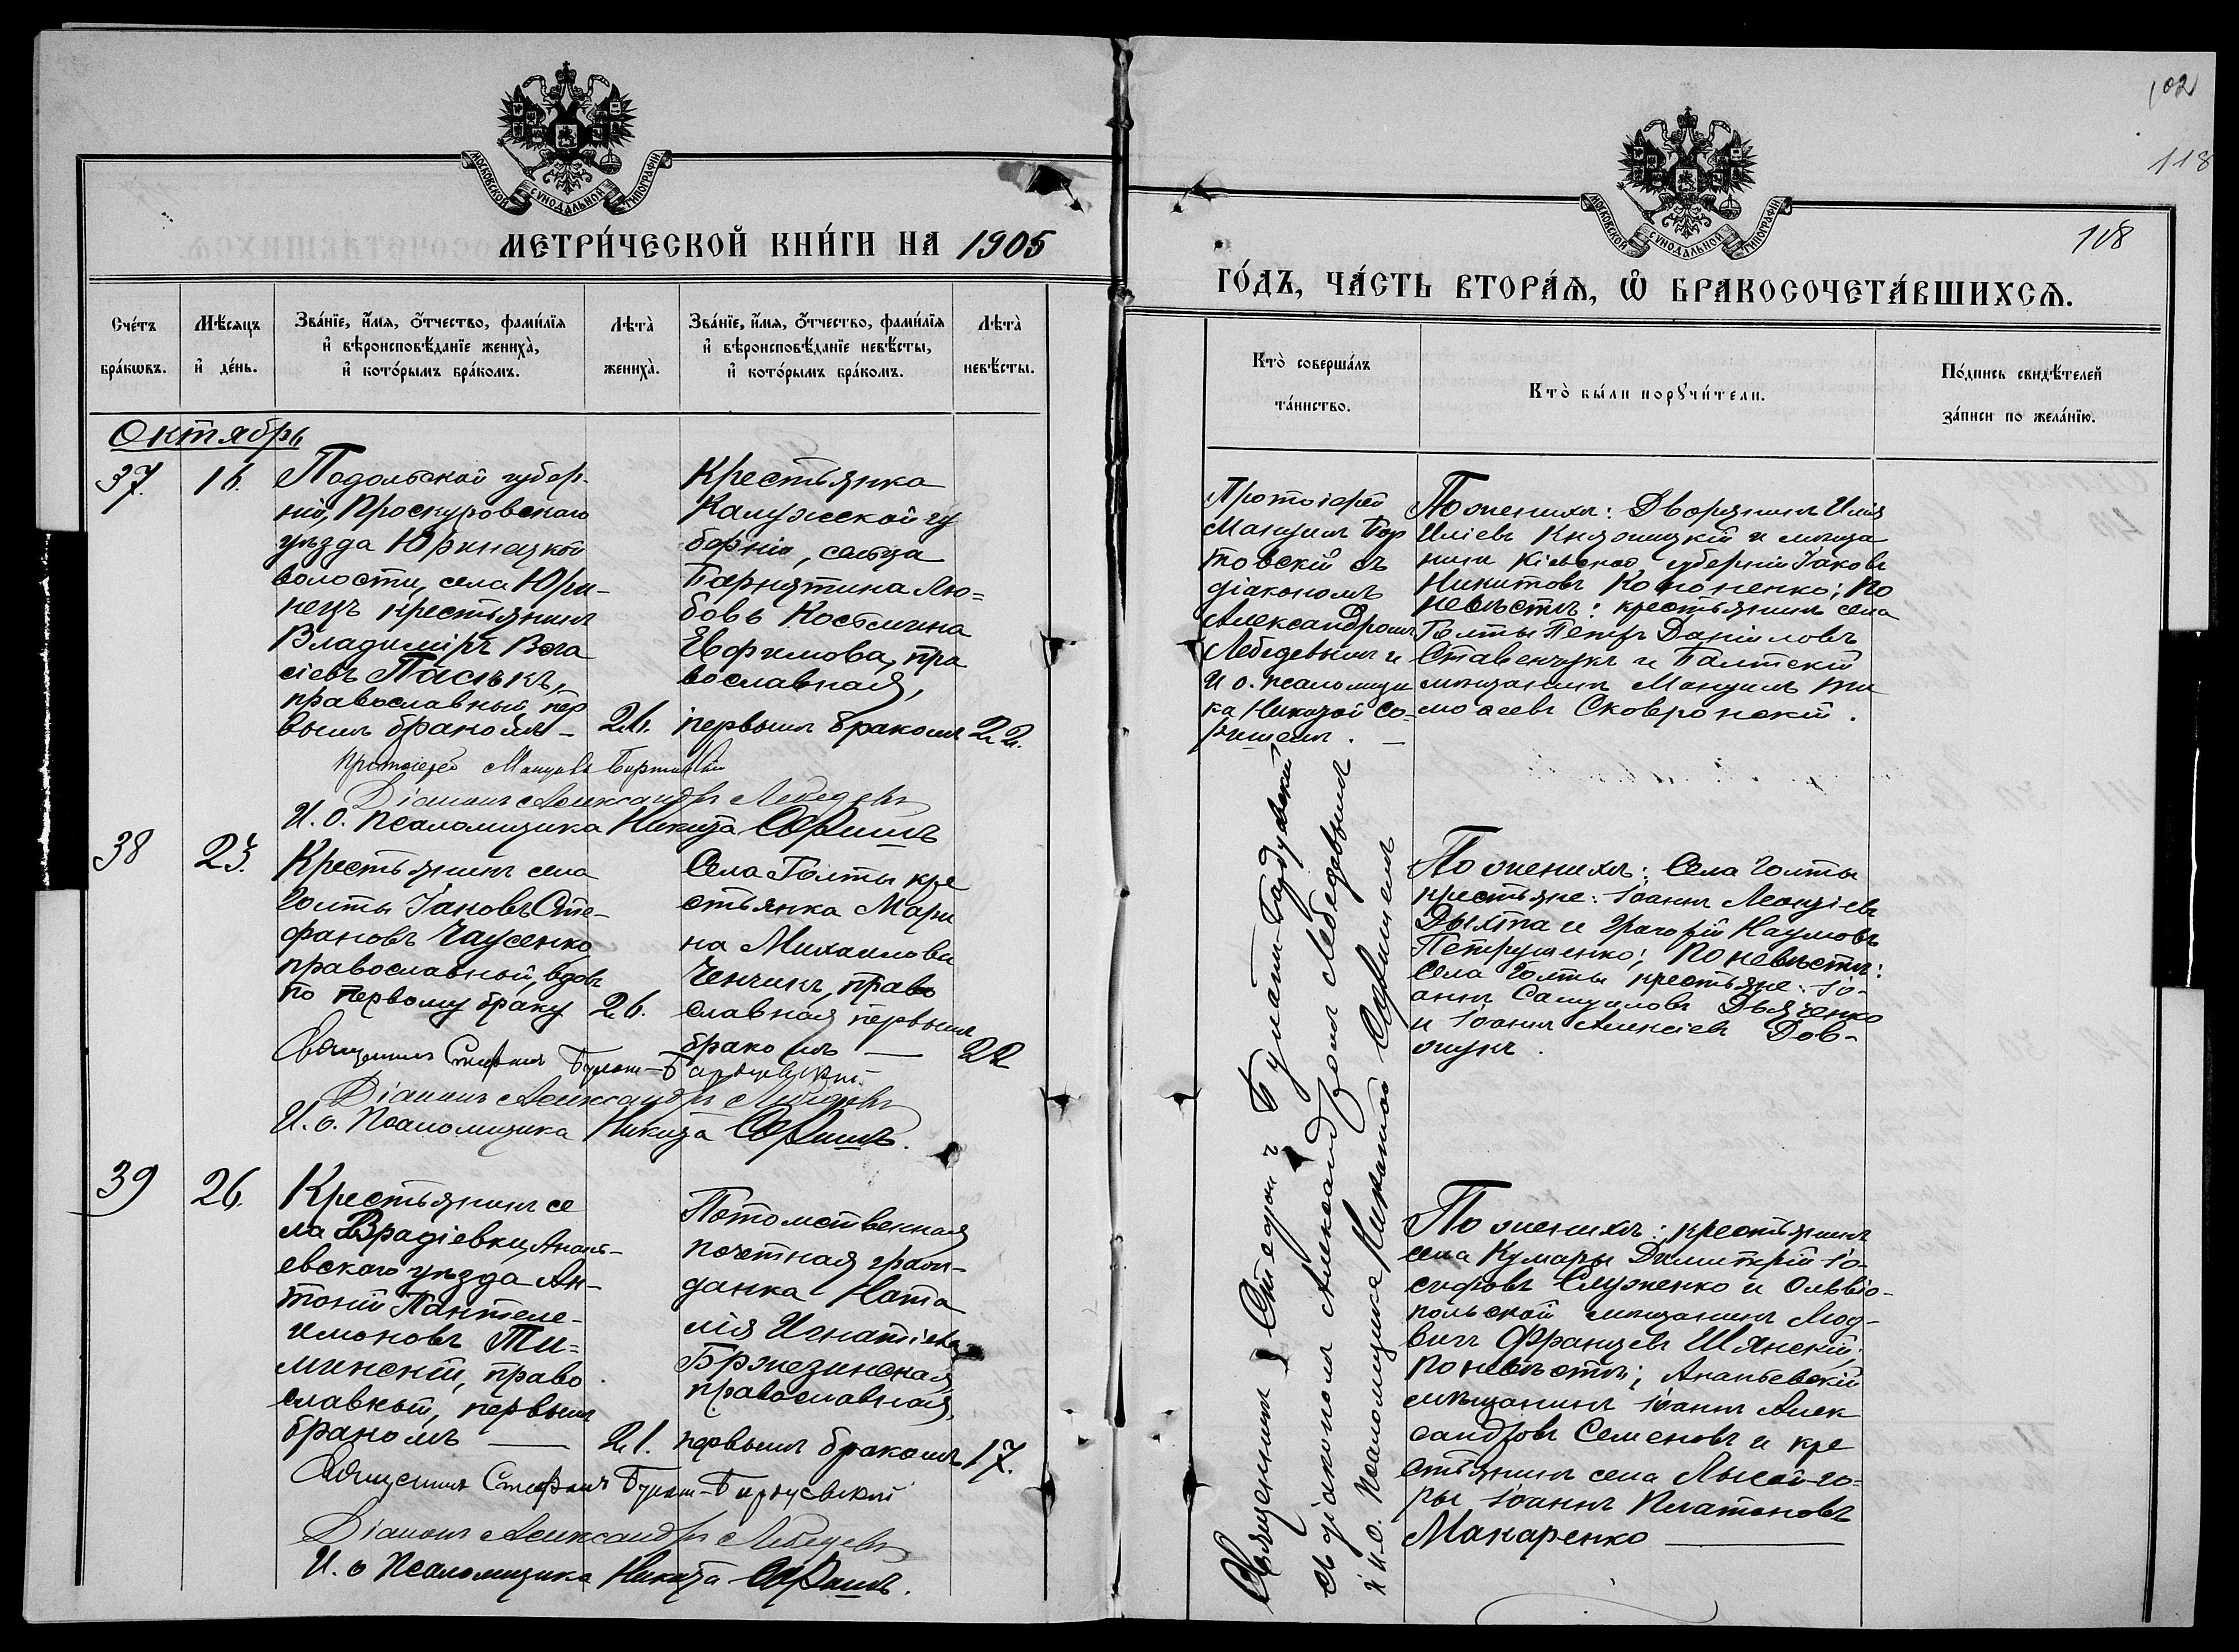 102
118
118
МОСКОВСКОЙ СѴНОДАЛЬНОЙ ТИПОГРАФІИ
МЕТРИ́ЧЕСКОЙ КНИ́ГИ НА 1905
Сче́тъ бра́кѡвъ.
Мѣ́сяцъ и҆ де́нь.
Зва́нїе, и҆́мѧ, ѻ҆́тчество, фами́лїѧ
и҆ вѣроисповѣ́данїе жениха̀,
и҆ кото́рымъ бра́комъ.
Лѣта̀ жениха̀.
Зва́нїе, и҆́мѧ, ѻ҆́тчество, фами́лїѧ
и҆ вѣроисповѣ́данїе невѣ́сты,
и҆ кото́рымъ бра́комъ.
Лѣта̀ невѣ́сты.
Октябрь
37.
16.
Подольской губер-
ніи, Проскуровскаго
уѣзда Юринецкой
волости, села Юри-
нецъ крестьянинъ
Владиміръ Вла
сіевъ Пасѣкъ,
православный, пер
вымъ бракомъ –
26.
Крестьянка
Калужской гу
берніи, сельца
Барнятина Лю=
бовь Костмина
Евфимова, пра
вославная,
первымъ бракомъ
22.
Протоіерей Мануилъ Бортовскій
Діаконъ Александръ Лебедевъ
И. о. псаломщика Никита
38
23.
Крестьянинъ села
Голты Іаковъ Сте-
фановъ Чаусенко
православный, вдовъ
по первому браку
26.
Села Голты кре
стьянка Мари
на Михаилова
Ченчикъ, право
славная первымъ
бракомъ —
22
Священникъ Стефанъ Булат-Бардуевскій
Діаконъ Александръ Лебедевъ
И. о. Псаломщика Никита
39
26.
Крестьянинъ се
ла Врадіевки, Анань-
евскаго уѣзда Ан-
тоній Пантеле-
имоновъ Ти=
минскій, право
славный, первымъ
бракомъ —
21.
Потомственная
почетная граж-
данка Ната
лія Игнатіева
Бржезинская
православная,
первымъ бракомъ
17.
Священникъ Стефанъ Булат-Бардуевскій
Діаконъ Александръ Лебедевъ
И. о Псаломщика Никита
МОСКОВСКОЙ СѴНОДАЛЬНОЙ ТИПОГРАФІИ
ГО́ДЪ, ЧА́СТЬ ВТОРА́Ѧ, Ѡ҆ БРАКОСОЧЕТА́ВШИХСѦ.
Кто̀ соверша́лъ та́инство.
Кто̀ бы́ли порꙋчи́тели.
По́дпись свидѣ́телей
за́писи по жела́нїю.
Протоіерей
Мануилъ Бор
товскій съ
діакономъ
Александромъ
Лебедевымъ и
И о. псаломщи
ка Никитой
По женихѣ: Дворянинъ Илія
Иліевъ Княжицкій и мѣща
нинъ Кіевской губерніи Іаковъ
Никитовъ Кононенко; по
невѣстѣ: крестьянинъ села
Голты Петръ Даніиловъ
Ставенчукъ и Балтскій
мѣщанинъ Мануилъ Ти
моѳеевъ Сковронскій.
Священникъ Стефанъ Булатъ-Бардуевскій
съ діакономъ Александромъ Лебедевымъ
и и. о. псаломщика Никитой
По женихѣ: Села Голты
крестьяне: Іоаннъ Леонтіевъ
Дыхта и Григорій Наумовъ
Петрушенко; По невѣстѣ:
села Голты крестьяне: Іо-
аннъ Самуиловъ Дьяченко
и Іоаннъ Алексіевъ Дов-
жукъ.
По женихѣ: крестьянинъ
села Кумары Димитрій Іо-
сифовъ Служенко и Ольвіо-
польской мѣщанинъ Люд-
вигъ Францевъ Шянскій;
По невѣстѣ; Ананьевскій
мѣщанинъ Іоаннъ Алек
сандровъ Семеновъ и кре
стьянинъ села Лысой-Го-
ры Іоаннъ Платоновъ
Макаренко —